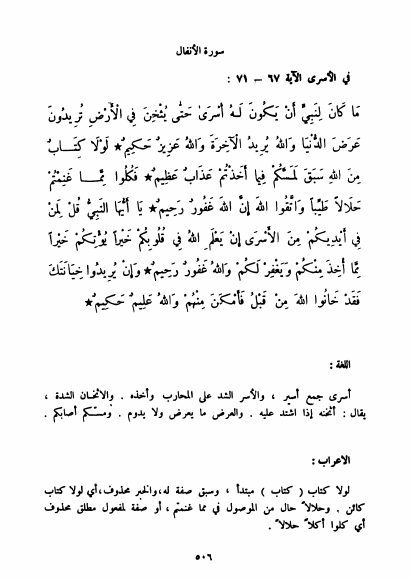 سورة الأنفال
في الأسرى الآية ٦٧ – ٧١ :
مَا كَانَ لِنَبِيٍّ أَنْ يَكُونَ لَهُ أَسْرَىٰ حَتَّى يُثْخِنَ فِي الْأَرْضِ تُرِيدُونَ
عَرَضَ الدُّنْيَا وَاللهُ يُرِيدُ الْآخِرَةَ وَاللهُ عَزِيزٌ حَكِيمٌ★ لَوْلَا كِتَابٌ
مِنَ اللهِ سَبَقَ لَمَسَّكُمْ فِيمَا أَخَذْتُمْ عَذَابٌ عَظِيمٌ★ فَكُلُوا مِمَّا غَنِمْتُمْ
حَلَالًا طَيِّبًا وَاتَّقُوا اللهَ إِنَّ اللهَ غَفُورٌ رَحِيمٌ★ يَا أَيُّهَا النَّبِيُّ قُلْ لِمَنْ
فِي أَيْدِيكُمْ مِنَ الْأَسْرَى إِنْ يَعْلَمِ اللهُ فِي قُلُوبِكُمْ خَيْرًا يُؤْتِكُمْ خَيْرًا
مِمَّا أُخِذَ مِنْكُمْ وَيَغْفِرْ لَكُمْ وَاللهُ غَفُورٌ رَحِيمٌ★ وَإِنْ يُرِيدُوا خِيَانَتَكَ
فَقَدْ خَانُوا اللهَ مِنْ قَبْلُ فَأَمْكَنَ مِنْهُمْ وَاللهُ عَلِيمٌ حَكِيمٌ★
اللغة :
أسرى جمع أسير ، والأسر الشد على المحارب وأخذه . والاثخان الشدة ،
يقال : أثخنه إذا اشتد عليه . والعرض ما يعرض ولا يدوم . ومسّكم أصابكم .
الاعراب :
لولا كتاب ( كتاب ) مبتدأ ، وسبق صفة له، والخبر محذوف، أي لولا كتاب
كائن . وحلالاً حال من الموصول في مما غنمتم ، أو صفة لمفعول مطلق محذوف
أي كلوا أكلاً حلالاً .
٥٠٦